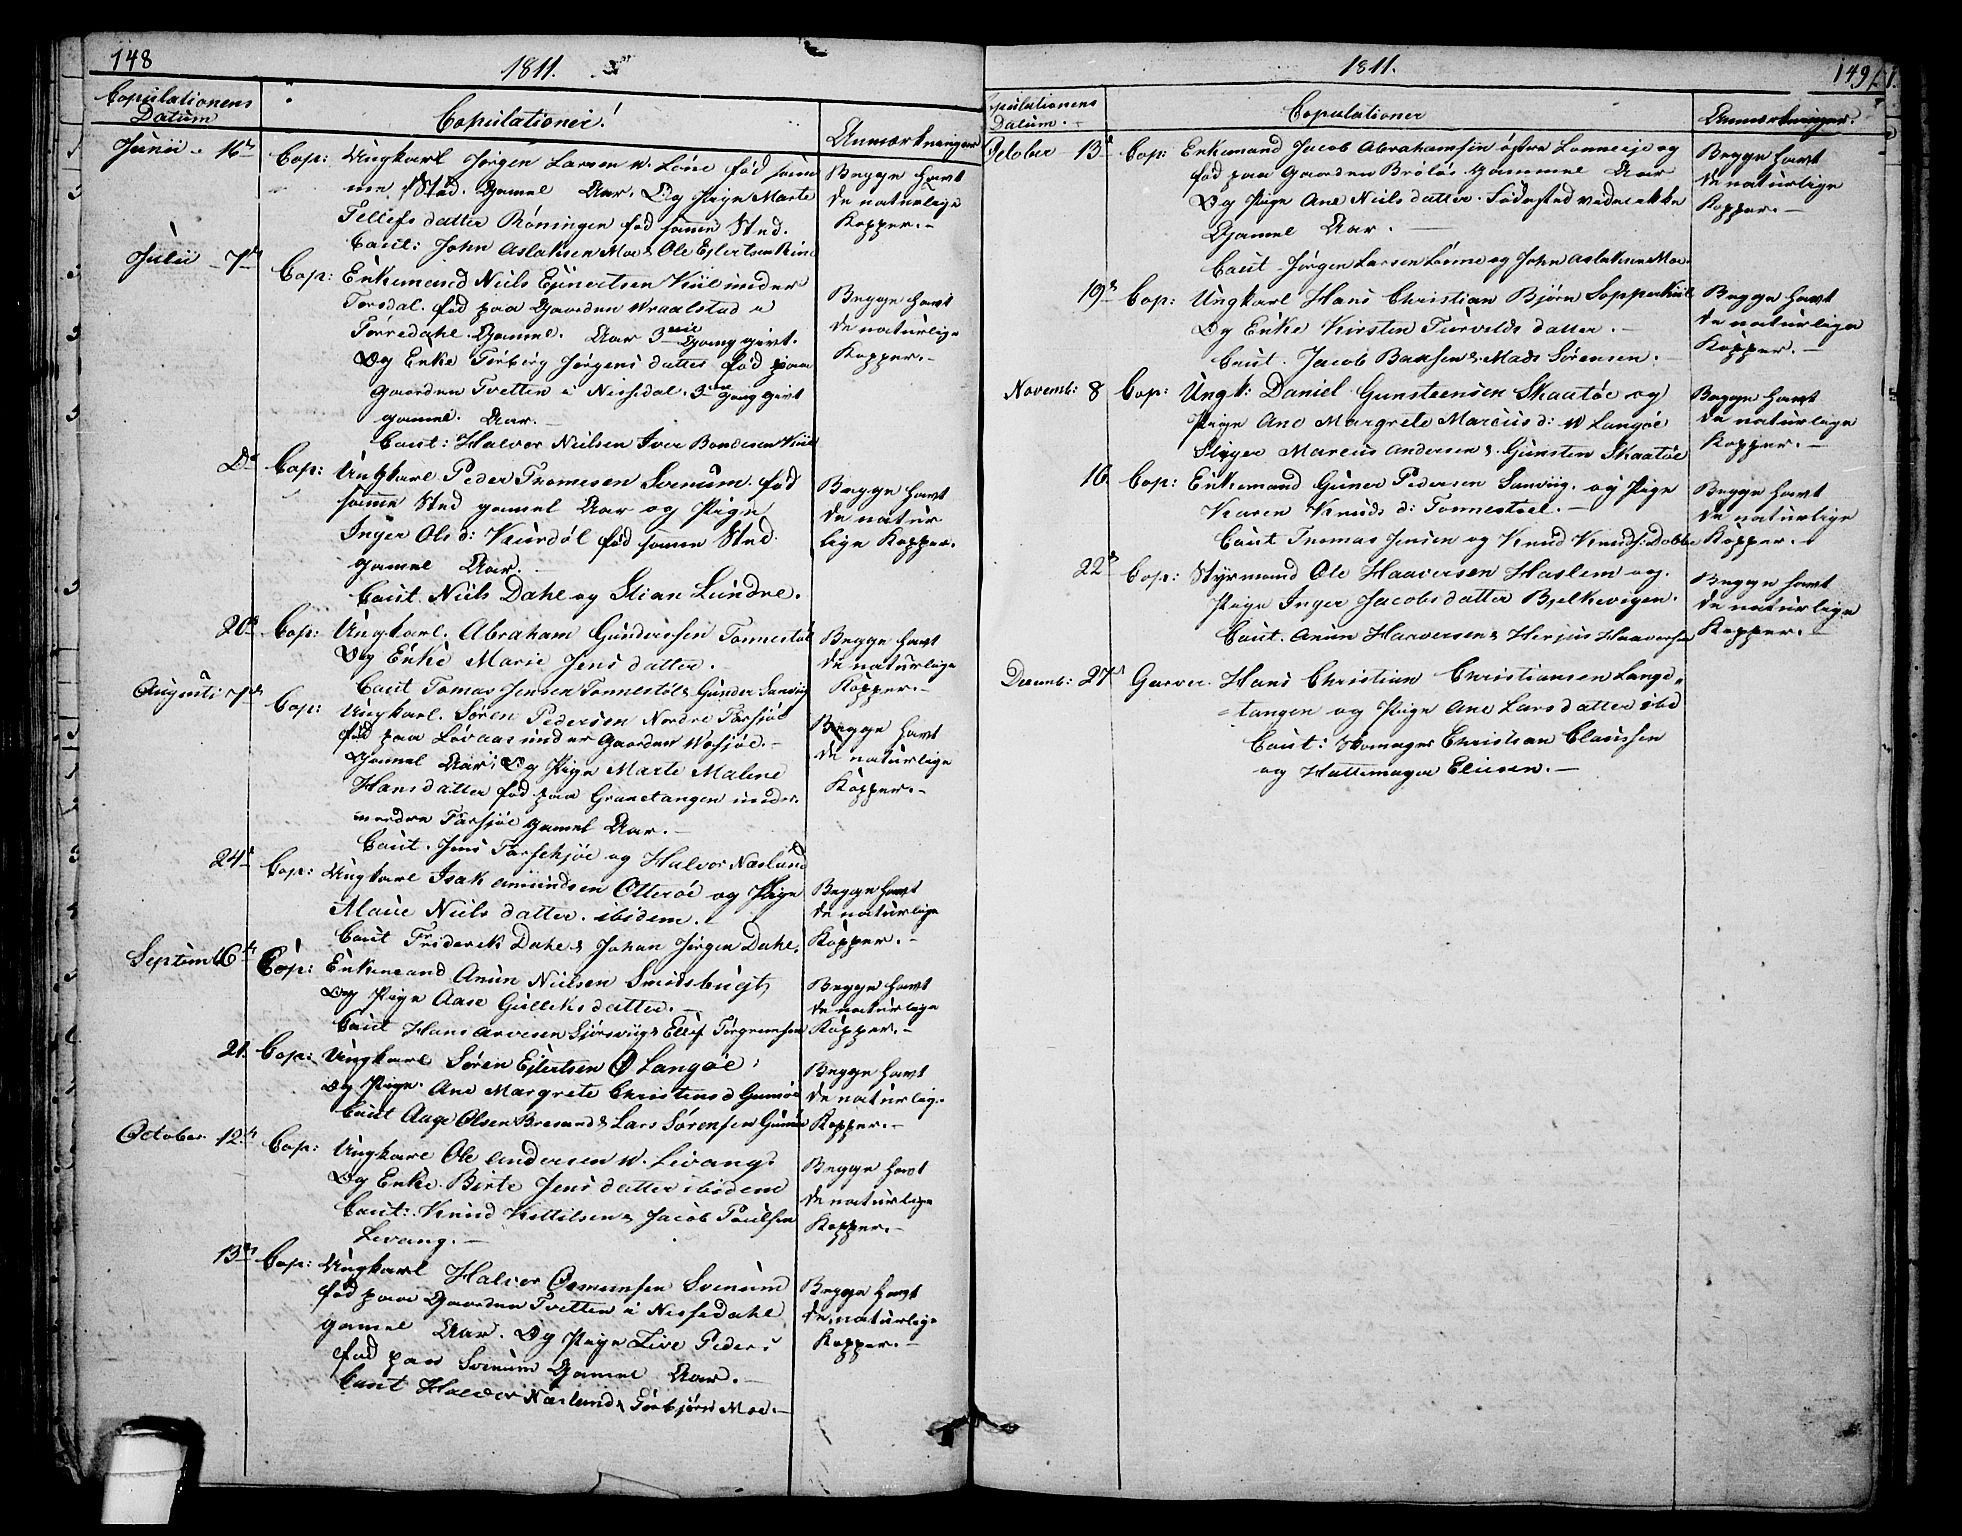 148
1811.
Copulationens
Datum
Copulationer!
Anmærkninger
Junii - 16de Cop: Ungkarl Jørgen Larsen W. Lõne fød samme
Sted. Gamel Aar. Og Pige Marte
Tellefs datter Røningen fød samme Sted.
Caut: John Aslaksen Moe & Ole Ejlertsen
Begge havt
de naturlige
Kopper.-
Julii - 7de Cop: Enkemand Niels Ejnertsen Kiil under
Torsdal. fød paa Gaarden Wraalstad i
Torredahl. Gamel. Aar 3die Gang givt.
Og Enke Torberg Jørgens datter fød paa
Gaarden Tvetten i Nissedal. 3die gang givt
gamel. Aar.
Caut: Halvor Nielsen Iver Bondesen Kiil
Begge havt
de naturlige
Kopper.-
Do Cop: Ungkarl Peder Thomesen Svenum. fød
samme Sted gamel Aar og Pige
Inger Ols d: Kurdøl fød samme Sted.
gamel Aar.
Caut. Niels Dahl og Stian Lundre.
Begge havt
de natur
lige Kopper.
20de Cop: Ungkarl. Abraham Gunderssen Tonnestøl
Og Enke Marie Jens datter.
Caut Tomas Jensen Tonnestøl & Gunder Sanvig
Begge havt
de naturlige
Kopper.-
Augusti 7de Cop: Ungkarl. Søren Pedersen Nordre Torsjøe
fød paa Løvaas under Gaarden Wosjøe.
Gamel Aar; Og Pige Marte Malene
Hansdatter fød paa Granetangen under
nordre Torsjøe gamel Aar.
Caut. Jens Torsehjøe og Halvor Næslund
Begge havt
de naturlige
Kopper.-
24de Cop: Ungkarl Isak Amundsen Otterøe og Pige
Marie Niels datter. ibidem.
Caut Friderik Dahl & Johan Jørgen Dahl.
Begge havt
de naturlige
Kopper.-
Septemb 6te Cop: Enkemand Anun Nielsen Smidsbugt
Og Pige Aase Gulleks datter.
Caut Hans Arvesen & Ellef Torgrimsen
Begge havt
de naturlige
Kopper.-
21. Cop: Ungkarl Søren Ejlertsen Ø Langøe.
Og Pige. Ane Margrete Christens d Gumøe
Caut Aage Olsen Bresund & Lars Sørensen Gumøe
Begge havt
de naturlig.
Kopper.-
October. 12te Cop: Ungkarl Ole Andersen W. Levang.
Og Enke. Birte Jens datter ibidem
Caut: Knud Kittilsen & Jacob Poulsen
Levang.
Begge havt
de naturlige
Kopper.-
13de Cop: Ungkarl Halvor Osmunsen Svenum
fød paa Gaarden Tvetten i Nissedahl
gamel Aar. Og Pige Live Peders
fød paa Svenum Gamel Aar.
Caut Halvor Næslund & Torbjørn Moe.
Begge havt
de naturlige
Kopper.-
1811.
149
Copulationens
Datum.
Copulationer
Anmærkninger.
October 13de Cop: Enkemand Jacob Abrahamsen østre Lonneije og
fød paa Gaarden Brøløs Gammel Aar
Og Pige Ane Niels datter. Fødested vedes ikke
Gamel Aar.
Caut. Jørgen Larsen Lõnne og John Aslaksen Moe.
Begge havt
de naturlige
Kopper.-
19de Cop: Ungkarl Hans Christian Bjørn Sopperkiil
Og Enke Kirsten Turvelds datter.
Caut. Jacob Baksen & Mads Sørensen.
Begge havt
de naturlige
Kopper.-
Novemb: 8 Cop: Ungk: Daniel Gunsteensen Skaatøe og
Pige Ane Margrete Marcus d: W Langøe
Sluger Marcus Andersen & Gunsten Skaatøe
Begge havt
de naturlige
Kopper.-
16. Cop: Enkemand Guner Pedersen Sanvig. og Pige
Karen Knuds d: Tonnestøel.
Caut Thomas Jensen og Knud Knuds: Dobbe
Begge havt
de naturlige
Kopper.-
22de Cop: Styrmand Ole Haaversen Haslem og.
Pige Inger Jacobsdatter Bjelkevigen.
Caut. Anun Haaversen & Herjus Haaversen
Begge havt
de naturlige
Kopper.-
Decemb: 27de Garver. Hans Christian Christiansen Lange-
tangen og Pige Ane Lars datter ibid
Caut: Skomager Christian Claussen
og Hattemager Eliesen.